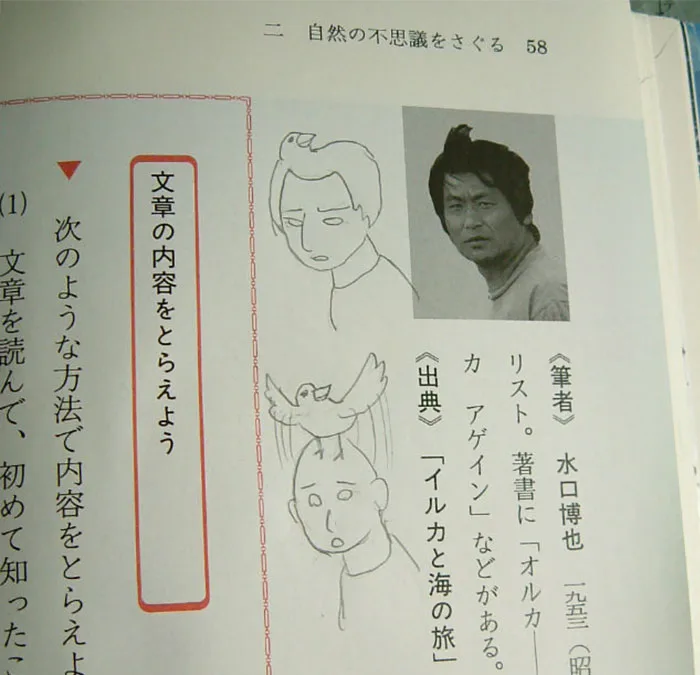 二 自然の不思議をさぐる 58
《筆者》 水口博也 一九五三(昭
リスト。著書に「オルカ―
カ アゲイン」などがある。
《出典》 「イルカと海の旅」
文章の内容をとらえよう
▼ 次のような方法で内容をとらえよ
(1) 文章を読んで、初めて知ったこ